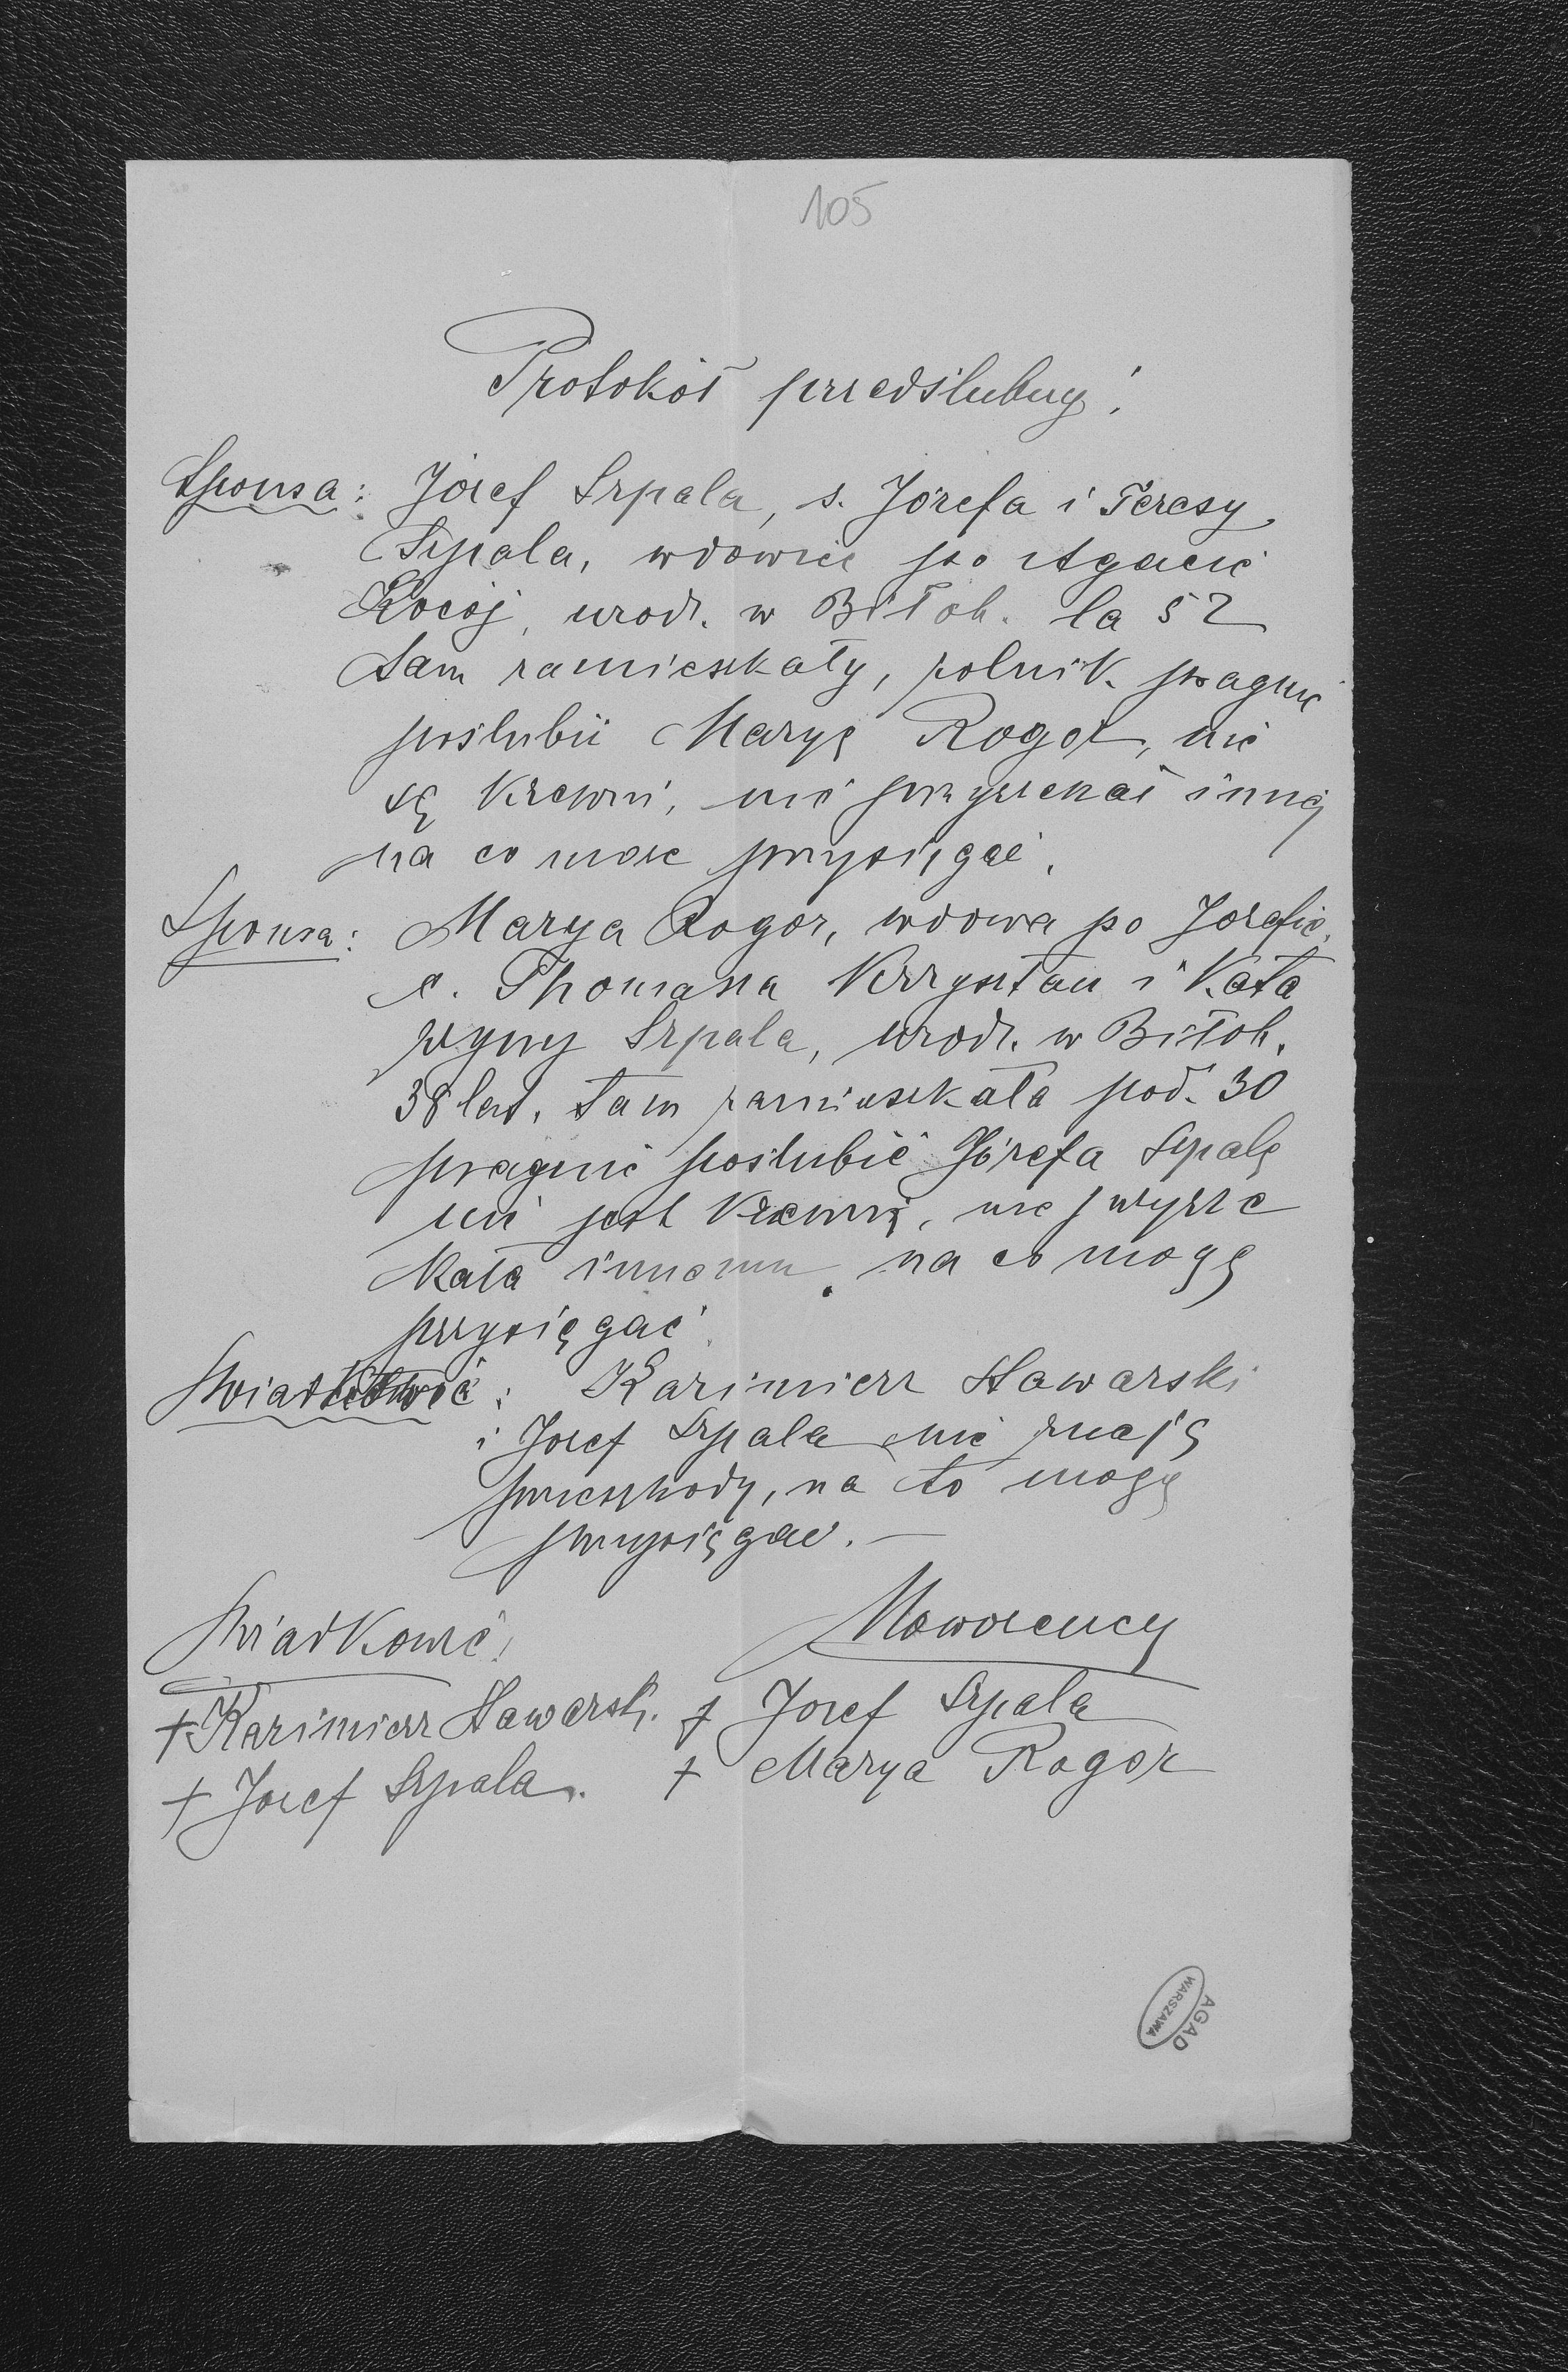 105
Protokół przedślubny.
Sponsa: Józef Szpala, s. Józefa i Teresy
Szpala, wdowiec po Agacie
Kocój, urodz. w Biłoh. la 52
tam zamieszkały, rolnik. pragnie
poślubić Maryę Rogoz, nie
są krewni, nie przyrzekał innej
na co może przysięgać.
Sponsa: Marya Rogoz, wdowa po Jozefie,
c. Thomasza Krzysztan i Kata
rzyny Szpala, urodz. w Biłoh.
38 lat, tam zamieszkała pod. 30
pragnie poślubić Józefa Szpalę
nie jest krewną, nie przyrze
kała innemu, na co mogę
przysięgać
Świadkowie: Kazimierz Sławarski
i Jozef Szpala nie znają
przeszkody, na to mogą
przysięgać. —
Świadkowie: Nowożeńcy
+ Kazimierz Sławarski. + Jozef Szpala
+ Jozef Szpala. + Marya Rogoz
AGAD
WARSZAWA